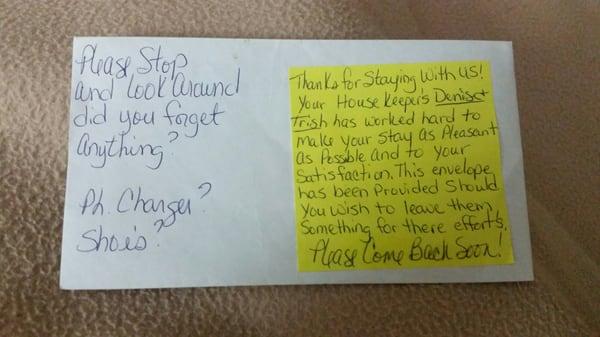 Please Stop
and Look Around
did you forget
Anything?
Ph. Charger?
Shoe's?
Thanks for Staying With US!
Your House keeper's Denise &
Trish has worked hard to
make your stay As Pleasant
As Possible And to your
Satisfaction. This envelope
has been Provided Should
You wish to leave them
Something for there efforts.
Please Come Back Soon!